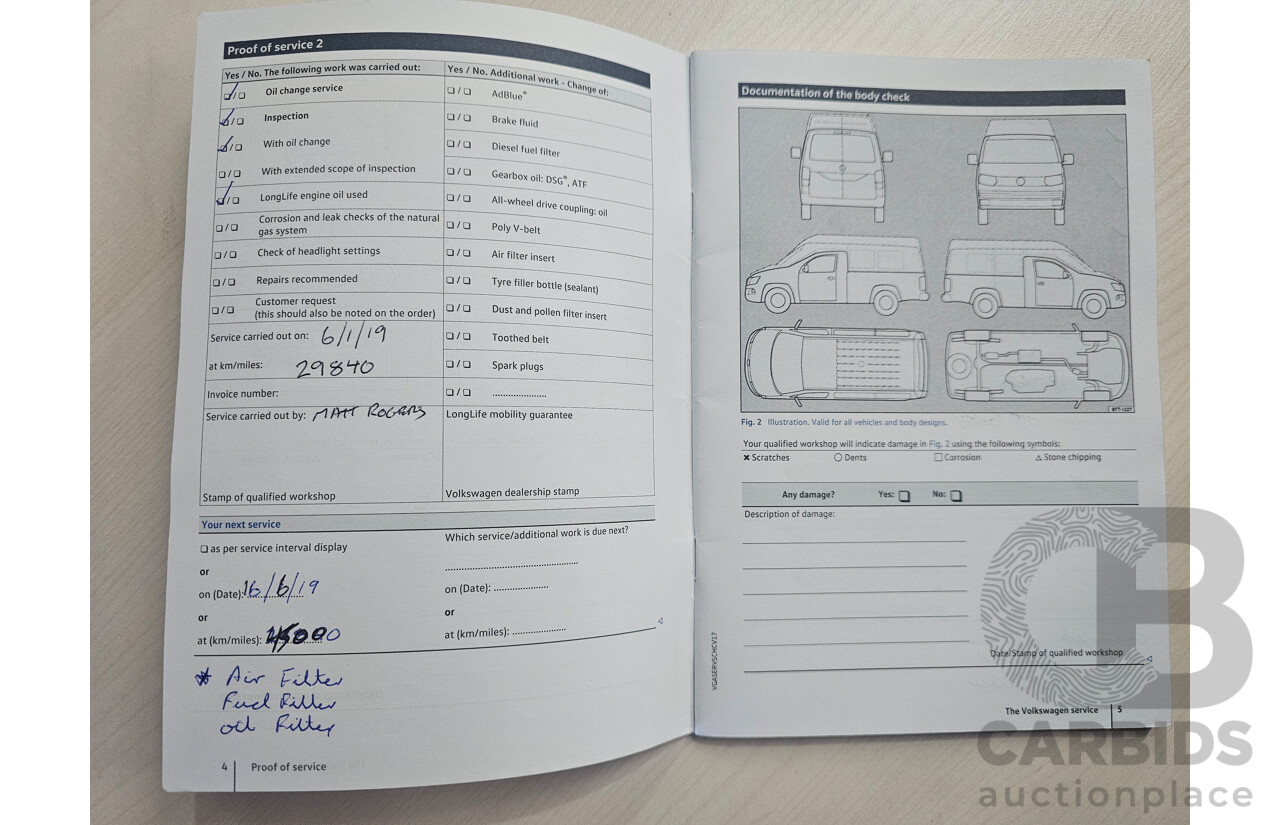 Proof of service 2
Yes / No. The following work was carried out:
❏ / ❏ Oil change service
❏ / ❏ Inspection
❏ / ❏ With oil change
❏ / ❏ With extended scope of inspection
❏ / ❏ LongLife engine oil used
❏ / ❏ Corrosion and leak checks of the natural
gas system
❏ / ❏ Check of headlight settings
❏ / ❏ Repairs recommended
❏ / ❏ Customer request
(this should also be noted on the order)
Service carried out on: 6/1/19
at km/miles: 29840
Invoice number:
Service carried out by: MATT ROGERS
Stamp of qualified workshop
Yes / No. Additional work - Change of:
❏ / ❏ AdBlue®
❏ / ❏ Brake fluid
❏ / ❏ Diesel fuel filter
❏ / ❏ Gearbox oil: DSG®, ATF
❏ / ❏ All-wheel drive coupling: oil
❏ / ❏ Poly V-belt
❏ / ❏ Air filter insert
❏ / ❏ Tyre filler bottle (sealant)
❏ / ❏ Dust and pollen filter insert
❏ / ❏ Toothed belt
❏ / ❏ Spark plugs
❏ / ❏ .....................
LongLife mobility guarantee
Volkswagen dealership stamp
Your next service
❏ as per service interval display
or
on (Date): 16/6/19
or
at (km/miles):
Which service/additional work is due next?
on (Date): .....................
or
at (km/miles): .....................
* Air Filter
Fuel Filter
oil Filter
4 Proof of service
Documentation of the body check
BTT-1227
Fig. 2 Illustration. Valid for all vehicles and body designs.
Your qualified workshop will indicate damage in Fig. 2 using the following symbols:
✖ Scratches ○ Dents □ Corrosion △ Stone chipping
Any damage? Yes: ❏ No: ❏
Description of damage:
Date/Stamp of qualified workshop
VGASERVSCHCV17
The Volkswagen service 5
CB
CARBIDS
auctionplace